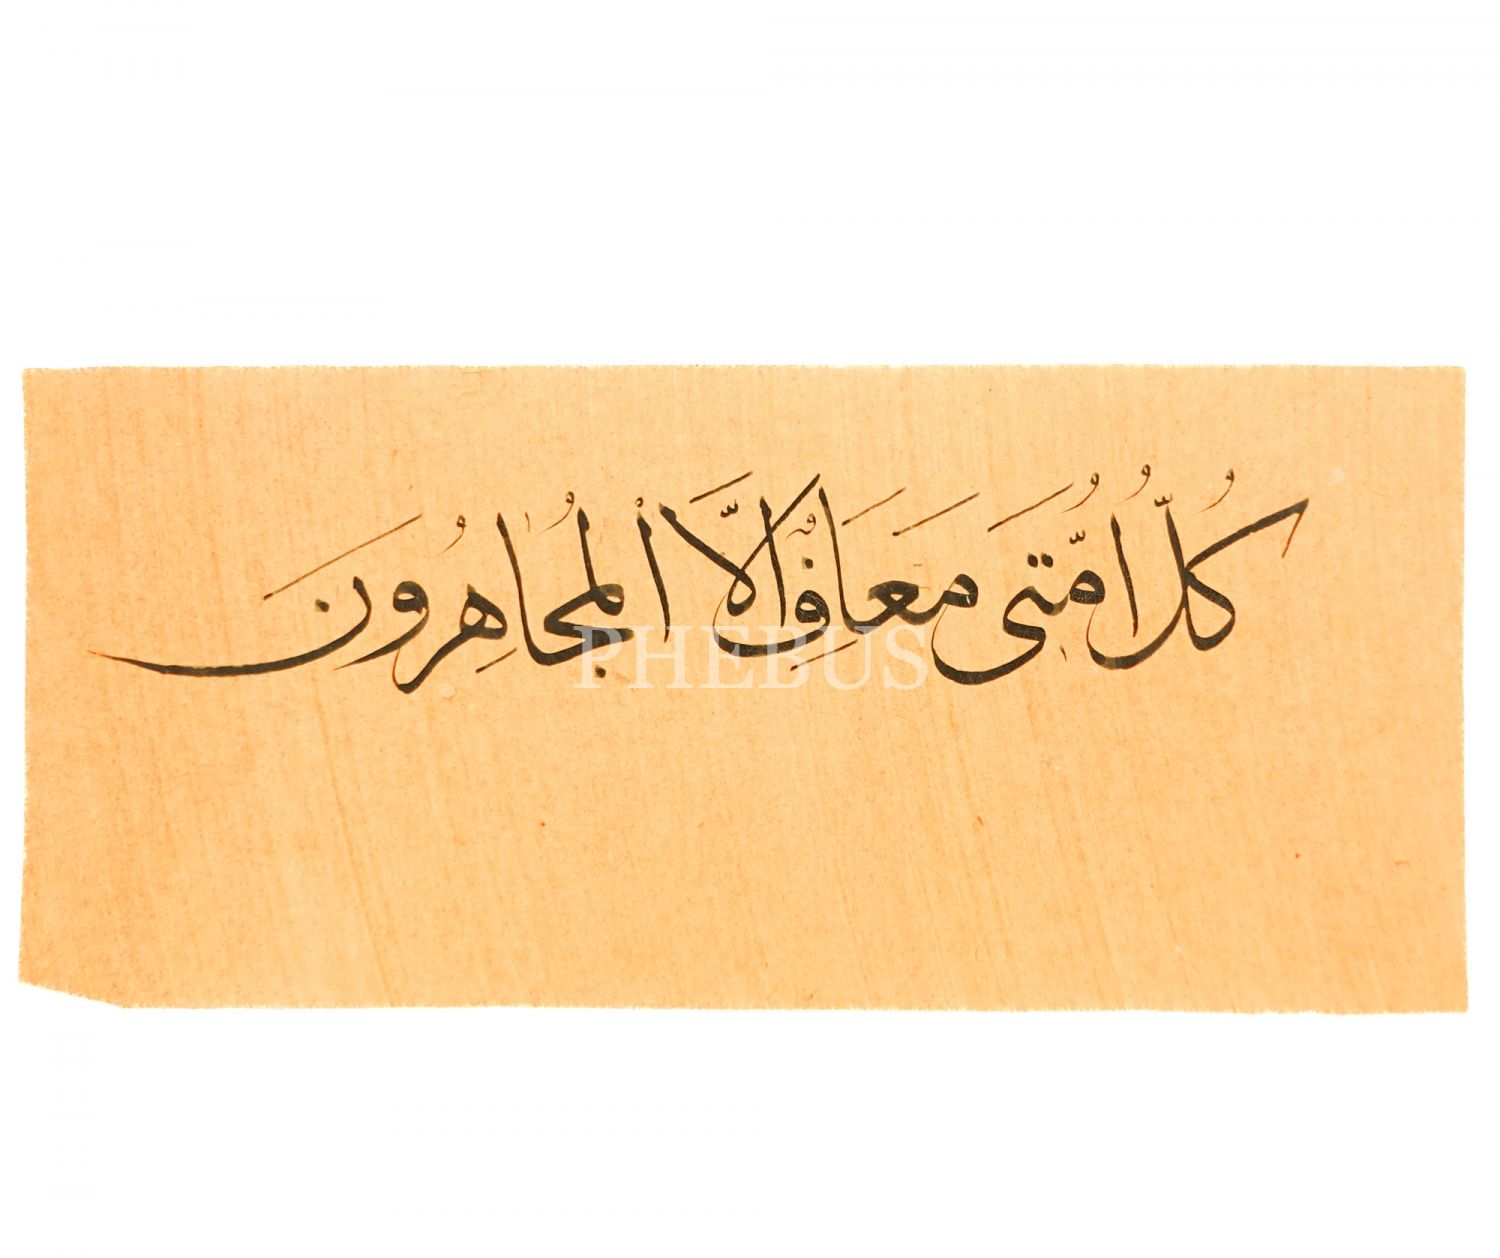 كُلُّ اُمَّتى مَعَافٌ اِلَّا الْمُجَاهِرُونَ
PHEBUS